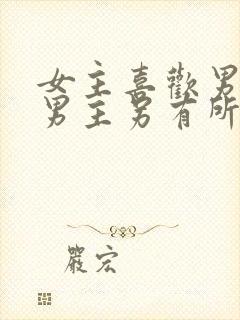 女主喜歡男
男主另有所
嚴宏